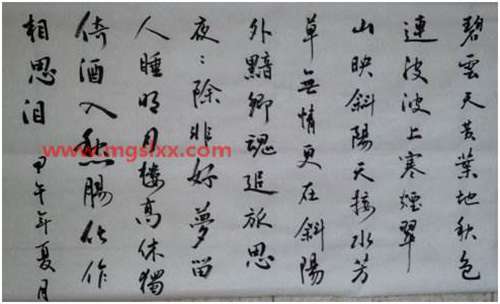 碧雲天黃葉地秋色
連波波上寒煙翠
山映斜陽天接水芳
草無情更在斜陽
外黯鄉魂追旅思
夜〻除非好夢留
人睡明月樓高休獨
倚酒入愁腸化作
相思泪 甲午年夏月
www.mgslxx.com